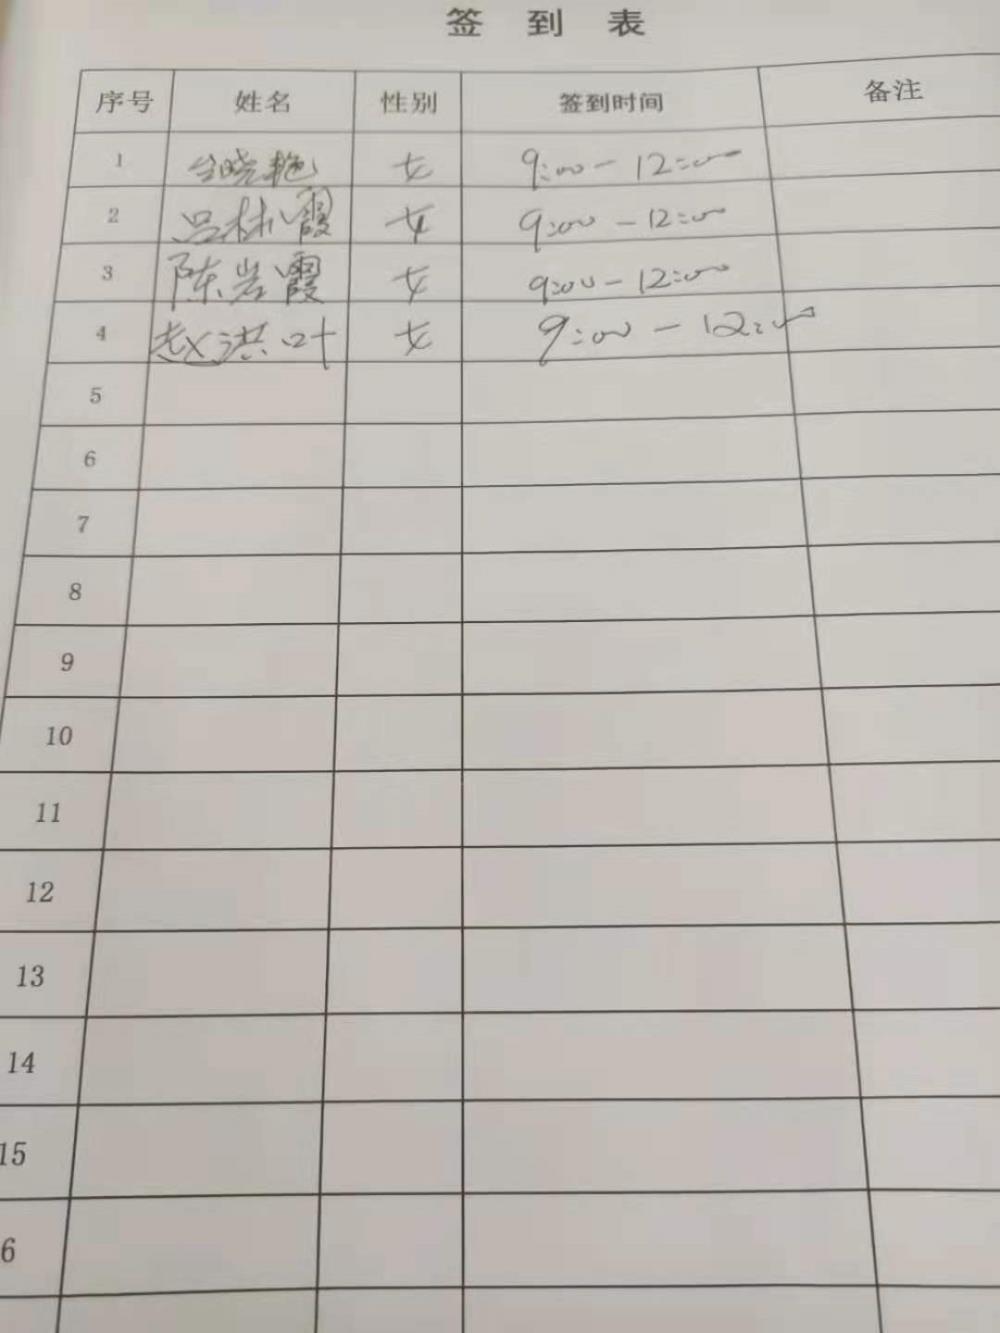 签到表
序号 姓名 性别 签到时间 备注
1 晓艳 女 9:00-12:00
2 吕林霞 女 9:00-12:00
3 陈岩霞 女 9:00-12:00
4 赵洪叶 女 9:00-12:00
5
6
7
8
9
10
11
12
13
14
15
6